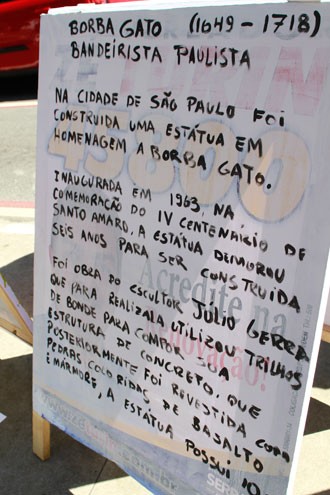 BORBA GATO (1649 - 1718)
BANDEIRISTA PAULISTA
NA CIDADE DE SÃO PAULO FOI
CONSTRUIDA UMA ESTÁTUA EM
HOMENAGEM A BORBA GATO.
INAUGURADA EM 1963, NA
COMEMORAÇÃO DO IV CENTENÁCIO DE
SANTO AMARO, A ESTÁTUA DEMOROU
SEIS ANOS PARA SER CONSTRUIDA
FOI OBRA DO ESCULTOR JÚLIO GERRA
QUE PARA REALIZALA UTILIZOU TRILHOS
DE BONDE PARA COMPOR SUA
ESTRUTURA DE CONCRETO, QUE
POSTERIORMENTE FOI REVESTIDA COM
PEDRAS COLORIDAS DE BASALTO
E MÁRMORE, A ESTÁTUA POSSUI 10
45800
Acredite na
Renovação!